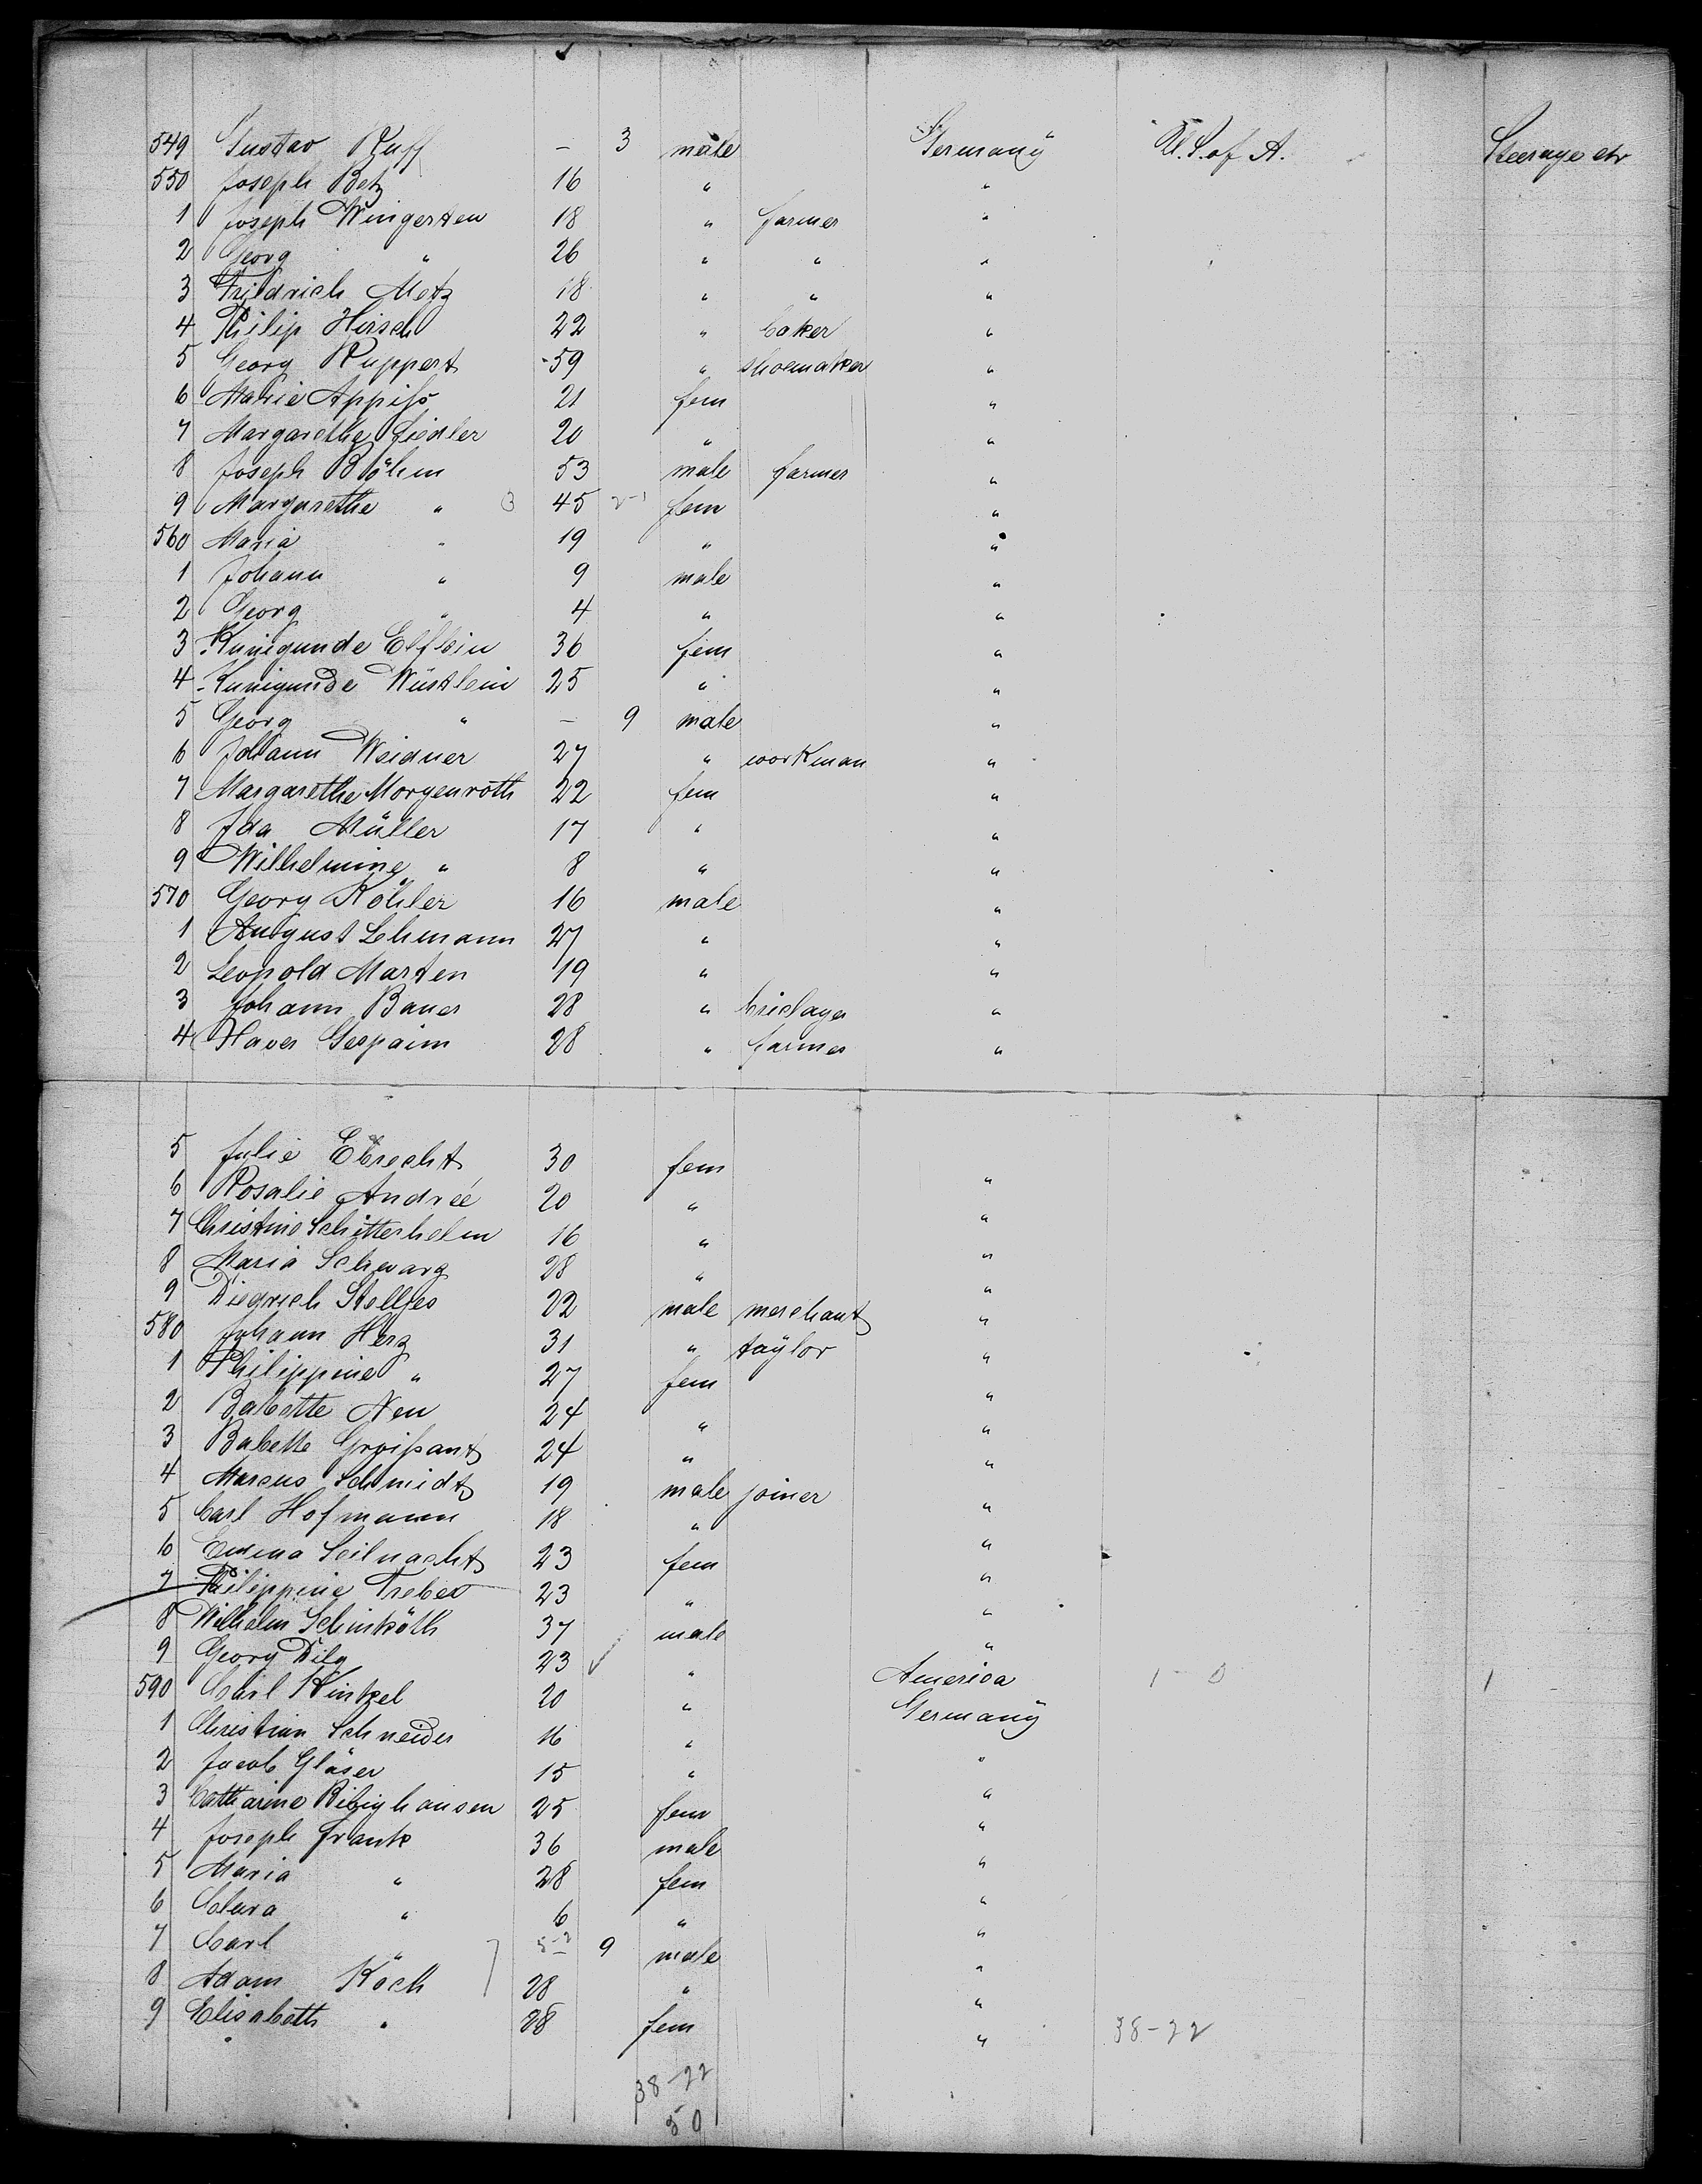 549 Gustav Ruff - 3 male Germany U.S. of A. Steerage etc
550 Joseph Betz 16 " "
1 Joseph Wingerten 18 " farmer "
2 Georg " 26 " " "
3 Friedrich Metz 18 " " "
4 Philip Hirsch 22 " baker "
5 Georg Ruppert 59 " shoemaker "
6 Marie Appiss 21 fem "
7 Margarethe Fiedler 20 " "
8 Joseph Böhm 53 male farmer "
9 Margarethe " 3 45 2-1 fem "
560 Maria " 19 " "
1 Johann " 9 male "
2 Georg " 4 " "
3 Kunigunde Elflein 36 fem "
4 Kunigunde Wüstlein 25 " "
5 Georg " - 9 male "
6 Johann Weidner 27 " workman "
7 Margarethe Morgenroth 22 fem "
8 Ida Müller 17 " "
9 Wilhelmine " 8 " "
570 Georg Köhler 16 male "
1 August Lehmann 27 " "
2 Leopold Marten 19 " "
3 Johann Bauer 28 " briclayer "
4 Xaver Gespaim 28 " farmer "
5 Julie Ebrecht 30 fem "
6 Rosalie Andreé 20 " "
7 Christine Schitterhelm 16 " "
8 Maria Schwarz 28 " "
9 Diedrich Stelljes 22 male merchant "
580 Johann Herz 31 " taylor "
1 Philippine " 27 fem "
2 Babette Neu 24 " "
3 Babette Groissant 24 " "
4 Marcus Schmidt 19 male joiner "
5 Carl Hofmann 18 " "
6 Emma Seilnacht 23 fem "
7 Philippine Treber 23 " "
8 Wilhelm 37 male "
9 Georg Dilg 23 " America 1 0 1
590 Carl Kintzel 20 " Germany
1 Christian Schneider 16 " "
2 Jacob Gläser 15 " "
3 Catharine Bibighausen 25 fem "
4 Joseph Frank 36 male "
5 Maria " 28 fem "
6 Clara " 6 " "
7 Carl " - 9 male "
8 Adam Koch 28 " "
9 Elisabeth " 28 fem " 38-22
38-22
50